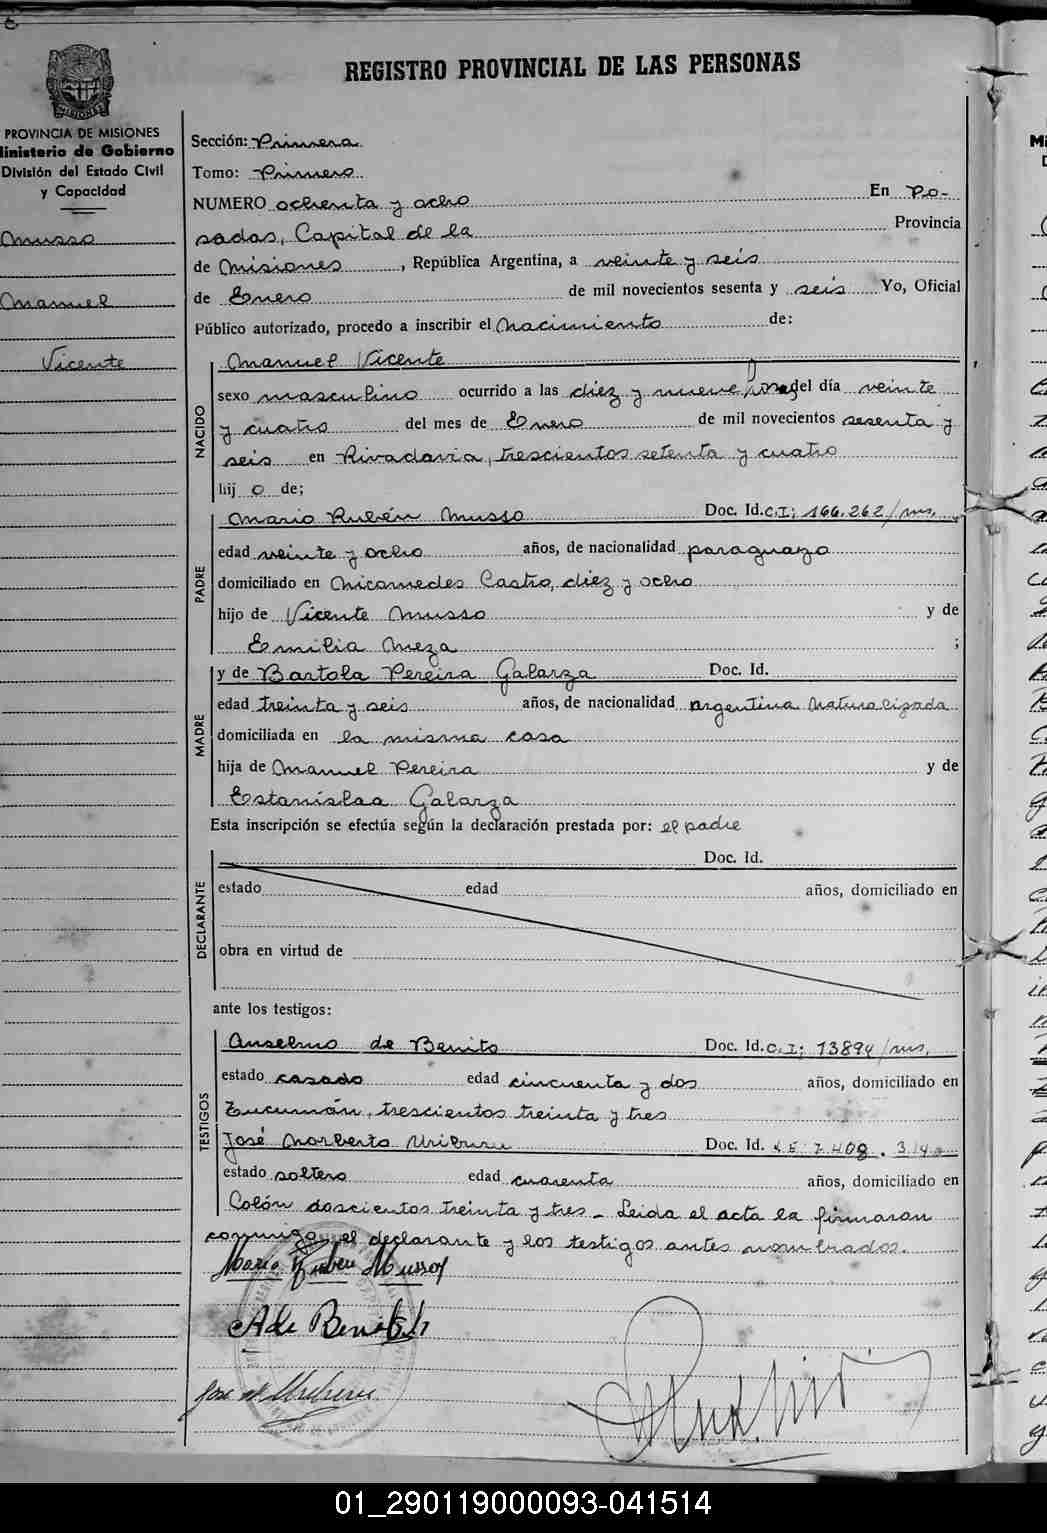 REGISTRO PROVINCIAL DE LAS PERSONAS
MISIONES
PROVINCIA DE MISIONES
Ministerio de Gobierno
División del Estado Civil
y Capacidad
Musso
Manuel
Vicente
Sección: Primera
Tomo: Primero
NUMERO ochenta y ocho En Po-
sadas, Capital de la Provincia
de Misiones, República Argentina, a veinte y seis
de Enero de mil novecientos sesenta y seis Yo, Oficial
Público autorizado, procedo a inscribir el Nacimiento de:
NACIDO
Manuel Vicente
sexo masculino ocurrido a las diez y nueve horas del día veinte
y cuatro del mes de Enero de mil novecientos sesenta y
seis en Rivadavia, trescientos setenta y cuatro
hijo de;
PADRE
Mario Rubén Musso Doc. Id. C.I; 166.262/ms.
edad veinte y ocho años, de nacionalidad paraguayo
domiciliado en Nicomedes Castro, diez y ocho
hijo de Vicente Musso y de
Emilia Meza ;
MADRE
y de Bartola Pereira Galarza Doc. Id.
edad treinta y seis años, de nacionalidad argentina naturalizada
domiciliada en la misma casa
hija de Manuel Pereira y de
Estanislaa Galarza
Esta inscripción se efectúa según la declaración prestada por: el padre
DECLARANTE
Doc. Id.
estado edad años, domiciliado en
obra en virtud de
ante los testigos:
TESTIGOS
Anselmo de Benito Doc. Id. C.I; 13894/ms.
estado casado edad cincuenta y dos años, domiciliado en
Tucumán, trescientos treinta y tres
José Norberto Uriburu Doc. Id.
estado soltero edad cuarenta años, domiciliado en
Colón doscientos treinta y tres - Leida el acta la firmaron
conmigo el declarante y los testigos antes nombrados.
Mario Ruben Musso
A de Benito
José N Uriburu
01_290119000093-041514